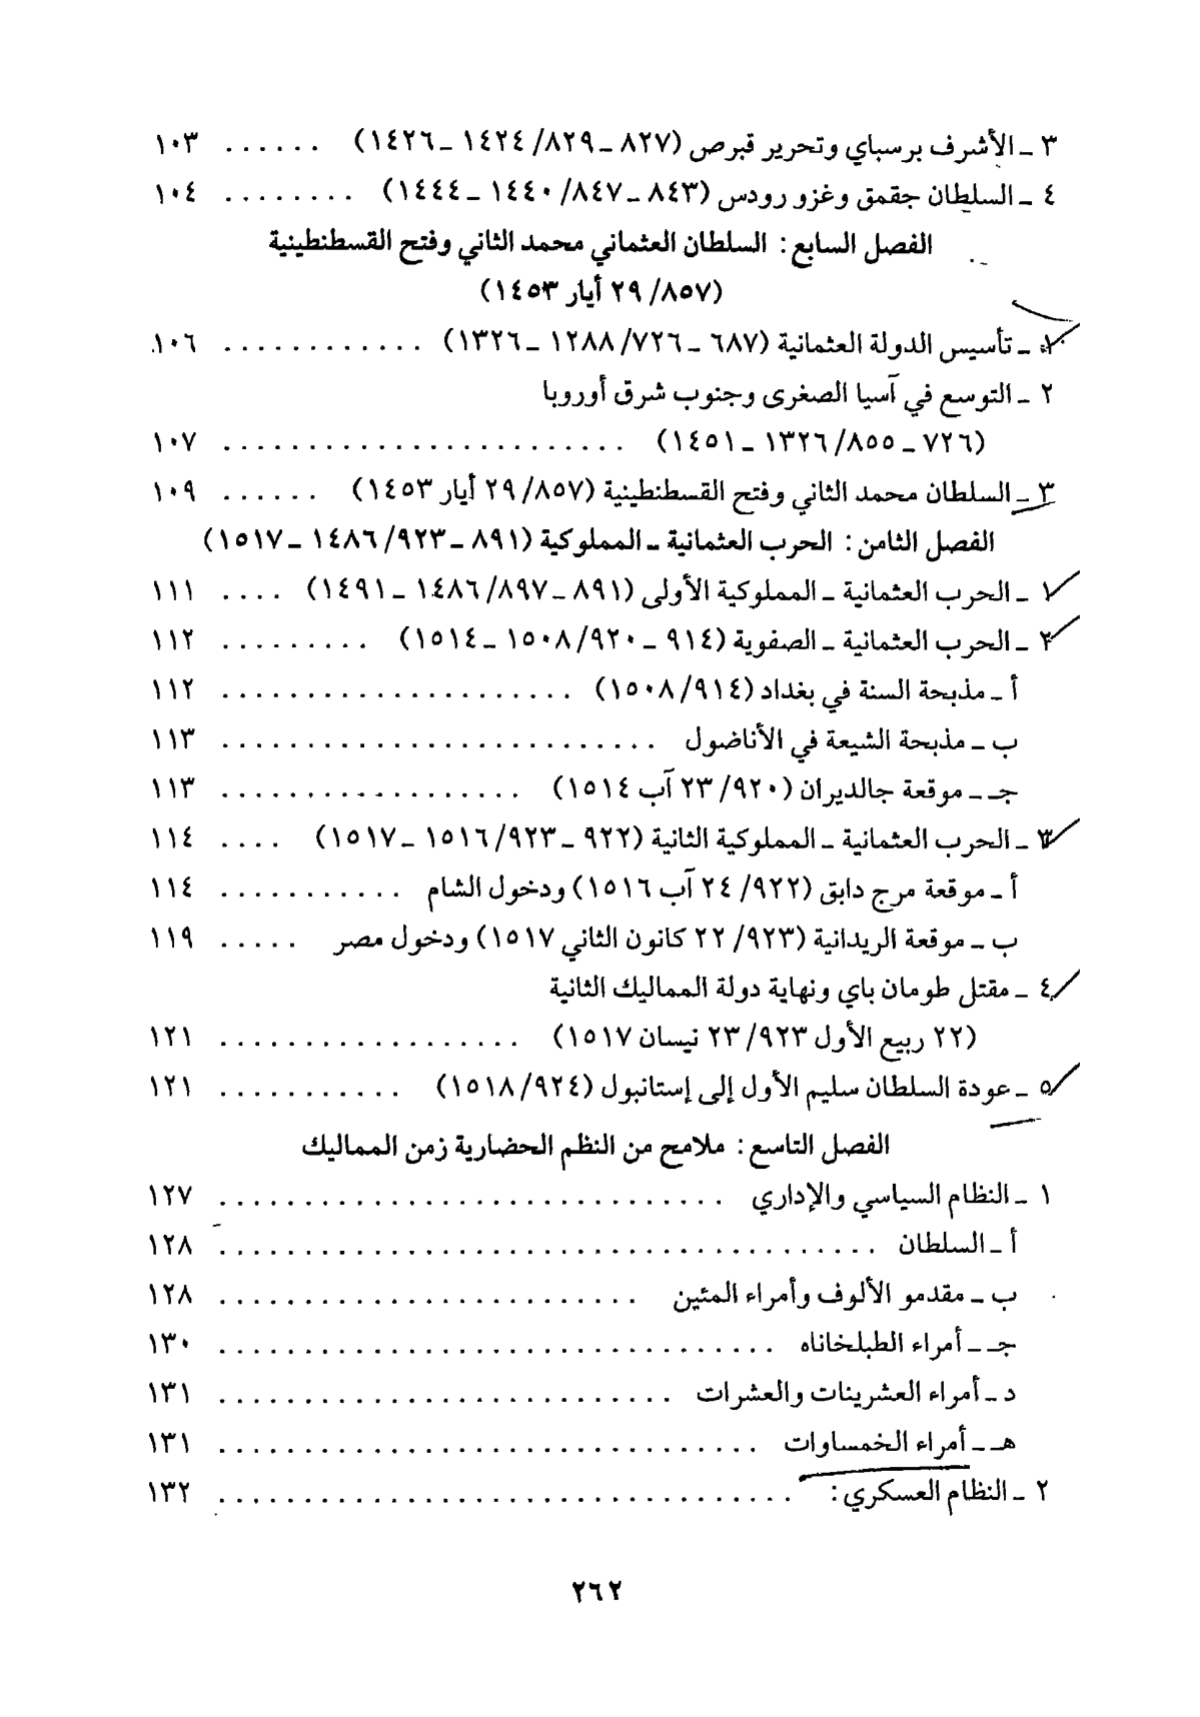 ٣ ــ الأشرف برسباي وتحرير قبرص (٨٢٧ ــ ٨٢٩/ ١٤٢٤ ــ ١٤٢٦) . . . . . . ١٠٣
٤ ــ السلطان جقمق وغزو رودس (٨٤٣ ــ ٨٤٧/ ١٤٤٠ ــ ١٤٤٤) . . . . . . . . ١٠٤
الفصل السابع: السلطان العثماني محمد الثاني وفتح القسطنطينية
(٨٥٧/ ٢٩ أيار ١٤٥٣)
١ ــ تأسيس الدولة العثمانية (٦٨٧ ــ ٧٢٦/ ١٢٨٨ ــ ١٣٢٦) . . . . . . . . . . . . ١٠٦
٢ ــ التوسع في آسيا الصغرى وجنوب شرق أوروبا
(٧٢٦ ــ ٨٥٥/ ١٣٢٦ ــ ١٤٥١) . . . . . . . . . . . . . . . . . . . . . . . . ١٠٧
٣ ــ السلطان محمد الثاني وفتح القسطنطينية (٨٥٧/ ٢٩ أيار ١٤٥٣) . . . . . . ١٠٩
الفصل الثامن: الحرب العثمانية ــ المملوكية (٨٩١ ــ ٩٢٣/ ١٤٨٦ ــ ١٥١٧)
١ ــ الحرب العثمانية ــ المملوكية الأولى (٨٩١ ــ ٨٩٧/ ١٤٨٦ ــ ١٤٩١) . . . . ١١١
٢ ــ الحرب العثمانية ــ الصفوية (٩١٤ ــ ٩٢٠/ ١٥٠٨ ــ ١٥١٤) . . . . . . . . . ١١٢
أ ــ مذبحة السنة في بغداد (٩١٤/ ١٥٠٨) . . . . . . . . . . . . . . . . . . . . . ١١٢
ب ــ مذبحة الشيعة في الأناضول . . . . . . . . . . . . . . . . . . . . . . . . . . ١١٣
جـ ــ موقعة جالديران (٩٢٠/ ٢٣ آب ١٥١٤) . . . . . . . . . . . . . . . . . . ١١٣
٣ ــ الحرب العثمانية ــ المملوكية الثانية (٩٢٢ ــ ٩٢٣/ ١٥١٦ ــ ١٥١٧) . . . . ١١٤
أ ــ موقعة مرج دابق (٩٢٢/ ٢٤ آب ١٥١٦) ودخول الشام . . . . . . . . . . . ١١٤
ب ــ موقعة الريدانية (٩٢٣/ ٢٢ كانون الثاني ١٥١٧) ودخول مصر . . . . . ١١٩
٤ ــ مقتل طومان باي ونهاية دولة المماليك الثانية
(٢٢ ربيع الأول ٩٢٣/ ٢٣ نيسان ١٥١٧) . . . . . . . . . . . . . . . . . . ١٢١
٥ ــ عودة السلطان سليم الأول إلى إستانبول (٩٢٤/ ١٥١٨) . . . . . . . . . . . ١٢١
الفصل التاسع: ملامح من النظم الحضارية زمن المماليك
١ ــ النظام السياسي والإداري . . . . . . . . . . . . . . . . . . . . . . . . . . . . . . ١٢٧
أ ــ السلطان . . . . . . . . . . . . . . . . . . . . . . . . . . . . . . . . . . . . . . . ١٢٨
ب ــ مقدمو الألوف وأمراء المئين . . . . . . . . . . . . . . . . . . . . . . . . . ١٢٨
جـ ــ أمراء الطبلخاناه . . . . . . . . . . . . . . . . . . . . . . . . . . . . . . . . . ١٣٠
د ــ أمراء العشرينات والعشرات . . . . . . . . . . . . . . . . . . . . . . . . . . . ١٣١
هـ ــ أمراء الخمساوات . . . . . . . . . . . . . . . . . . . . . . . . . . . . . . . . ١٣١
٢ ــ النظام العسكري: . . . . . . . . . . . . . . . . . . . . . . . . . . . . . . . . . . ١٣٢
٢٦٢